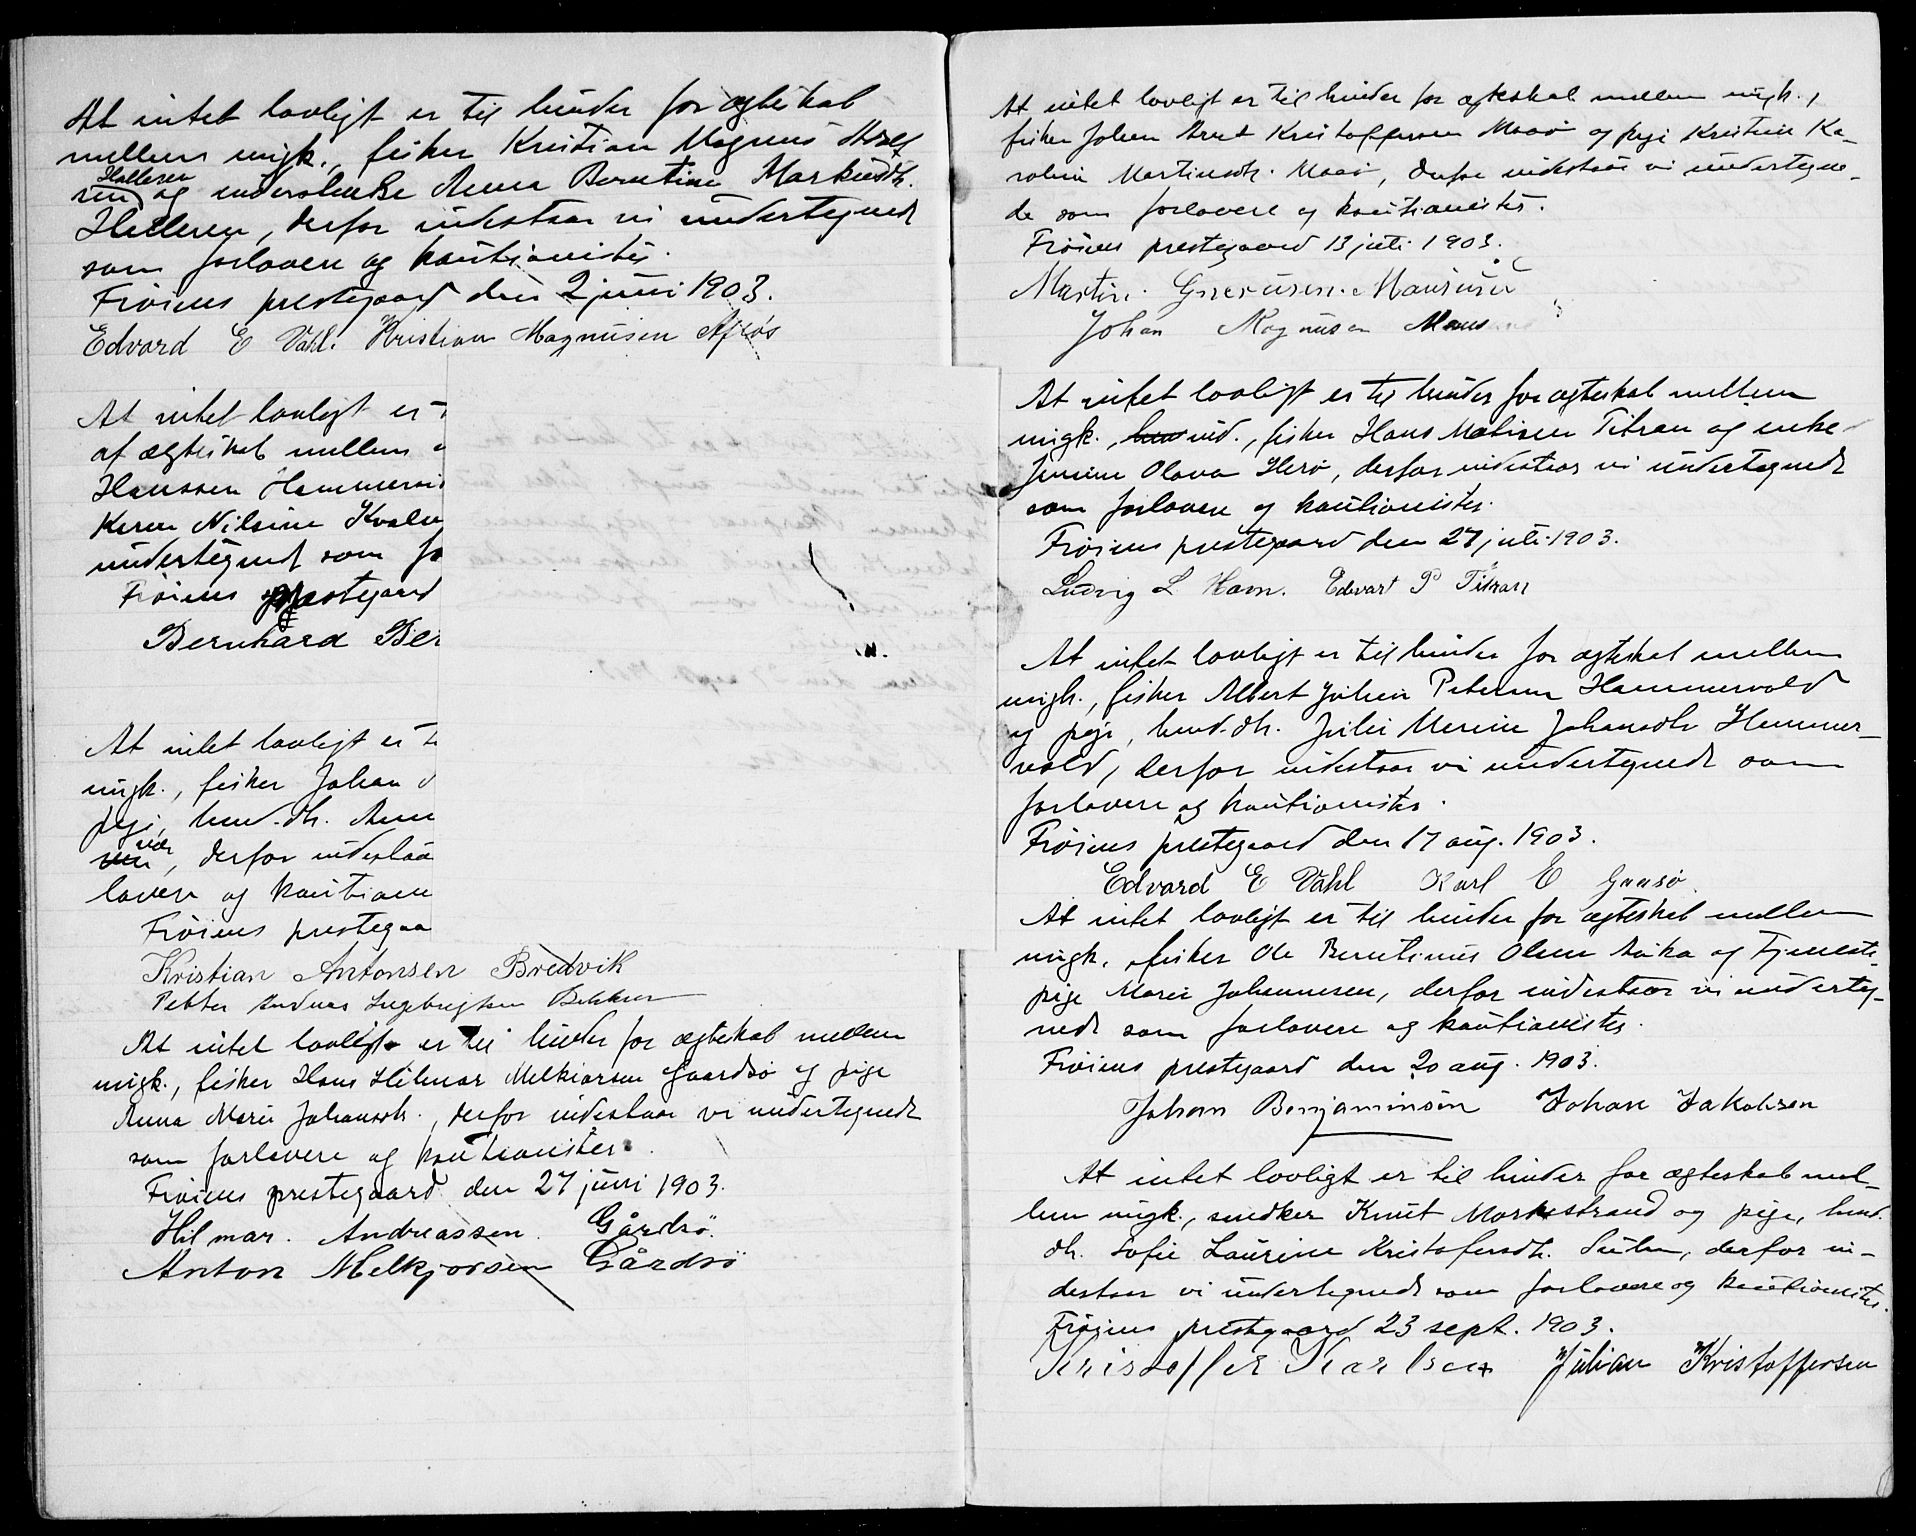 At intet lovligt er til hinder for ægteskab
mellem ungk., fisker Kristian Magnus
Halleren
og enderslenke Anna Berntine Markusdtr.
Halleren, derfor indestaar vi undertegnede
som forlovere og kautionister.
Frøiens prestegaard den 2 juni 1903.
Edvard E Vahl. Kristian Magnusen
At intet lovligt er
af ægteskab mellem
Hanssen
Karen Nilsine
undertegned som fo
Frøiens prestegaard
Bernhard Ber
At intet lovligt er t
ungk., fisker Johan
pige, huusd.dtr. Ann
derfor indestaa
lovere og kautione
Frøiens prestegaa
Kristian Antonsen Bredvik
Petter Andreas Ingebrigtsen
At intet lovligt er til hinder for ægteskab mellem
ungk., fisker Hans Hilmar Melkiorsen Gaardsø og pige
Anna Marie Johansdtr., derfor indestaar vi undertegnede
som forlovere og kautionister.
Frøiens prestegaard den 27 juni 1903.
Hilmar. Andreassen. Gårdsö.
Anton Melkjorsen Gårdsö
At intet lovligt er til hinder for ægteskab mellem ungk.,
fisker Johan Arnt Kristoffersen Maaø og pige Kristine Ka-
roline Martinsdtr. Maaø, derfor indestaar vi undertegne-
de som forlovere og kautionister.
Frøiens prestegaard 13 juli 1903.
Martin
Johan Magnusen
At intet lovligt er til hinder for ægteskab mellem
ungk., fisker Hans Mathisen Titran og enke
Jensine Olava Herø, derfor indestaar vi undertegnede
som forlovere og kautionister.
Frøiens prestegaard den 27 juli 1903.
Ludvig L Ham. Edvart P Titran
At intet lovligt er til hinder for ægteskab mellem
ungk., fisker Albert Julin Petersen Hammervold
og pige, huusd.dtr. Julie Marine Johansdtr Hammer-
vold, derfor indestaar vi undertegnede som
forlovere og kautionister.
Frøiens prestegaard den 17 aug. 1903.
Edvard E Vahl Karl E
At intet lovligt er til hinder for ægteskab mellem
ungk. fisker Ole Berntinus Olsen og Tjeneste-
pige Marie Johannesen, derfor indestaar vi underteg-
nede som forlovere og kautionister.
Frøiens prestegaard den 20 aug. 1903.
Johan Benjaminsen Johan Jakobsen
At intet lovligt er til hinder for ægteskab mel-
lem ungk., snedker Knut Morkestrand og pige, huusd.
dtr. Sofie Laurine Kristofersdtr. Sulen, derfor in-
destaar vi undertegnede som forlovere og kautionister.
Frøiens prestegaard 23 sept. 1903.
Kristoffer Karlsen Julian Kristoffersen